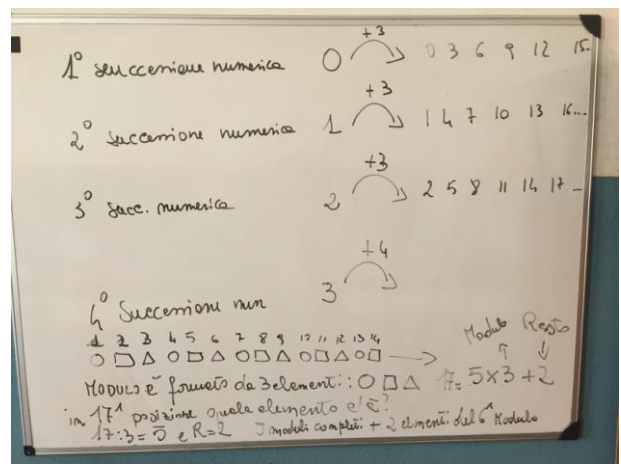 1° seuccessione numerica 0 +3 0 3 6 9 12 15..
2° successione numerica 1 +3 1 4 7 10 13 16....
3° succ. numerica 2 +3 2 5 8 11 14 17...
4° Successione num 3 +4
1 2 3 4 5 6 7 8 9 10 11 12 13 14
○ □ △ ○ □ △ ○ □ △ ○ □ △ ○ □
Modulo Resto
MODULO è formato da 3 elementi: ○ □ △ 17= 5×3+2
in 17ª posizione quale elemento c'è?
17:3=5 e R=2 5 moduli completi + 2 elementi del 6° Modulo